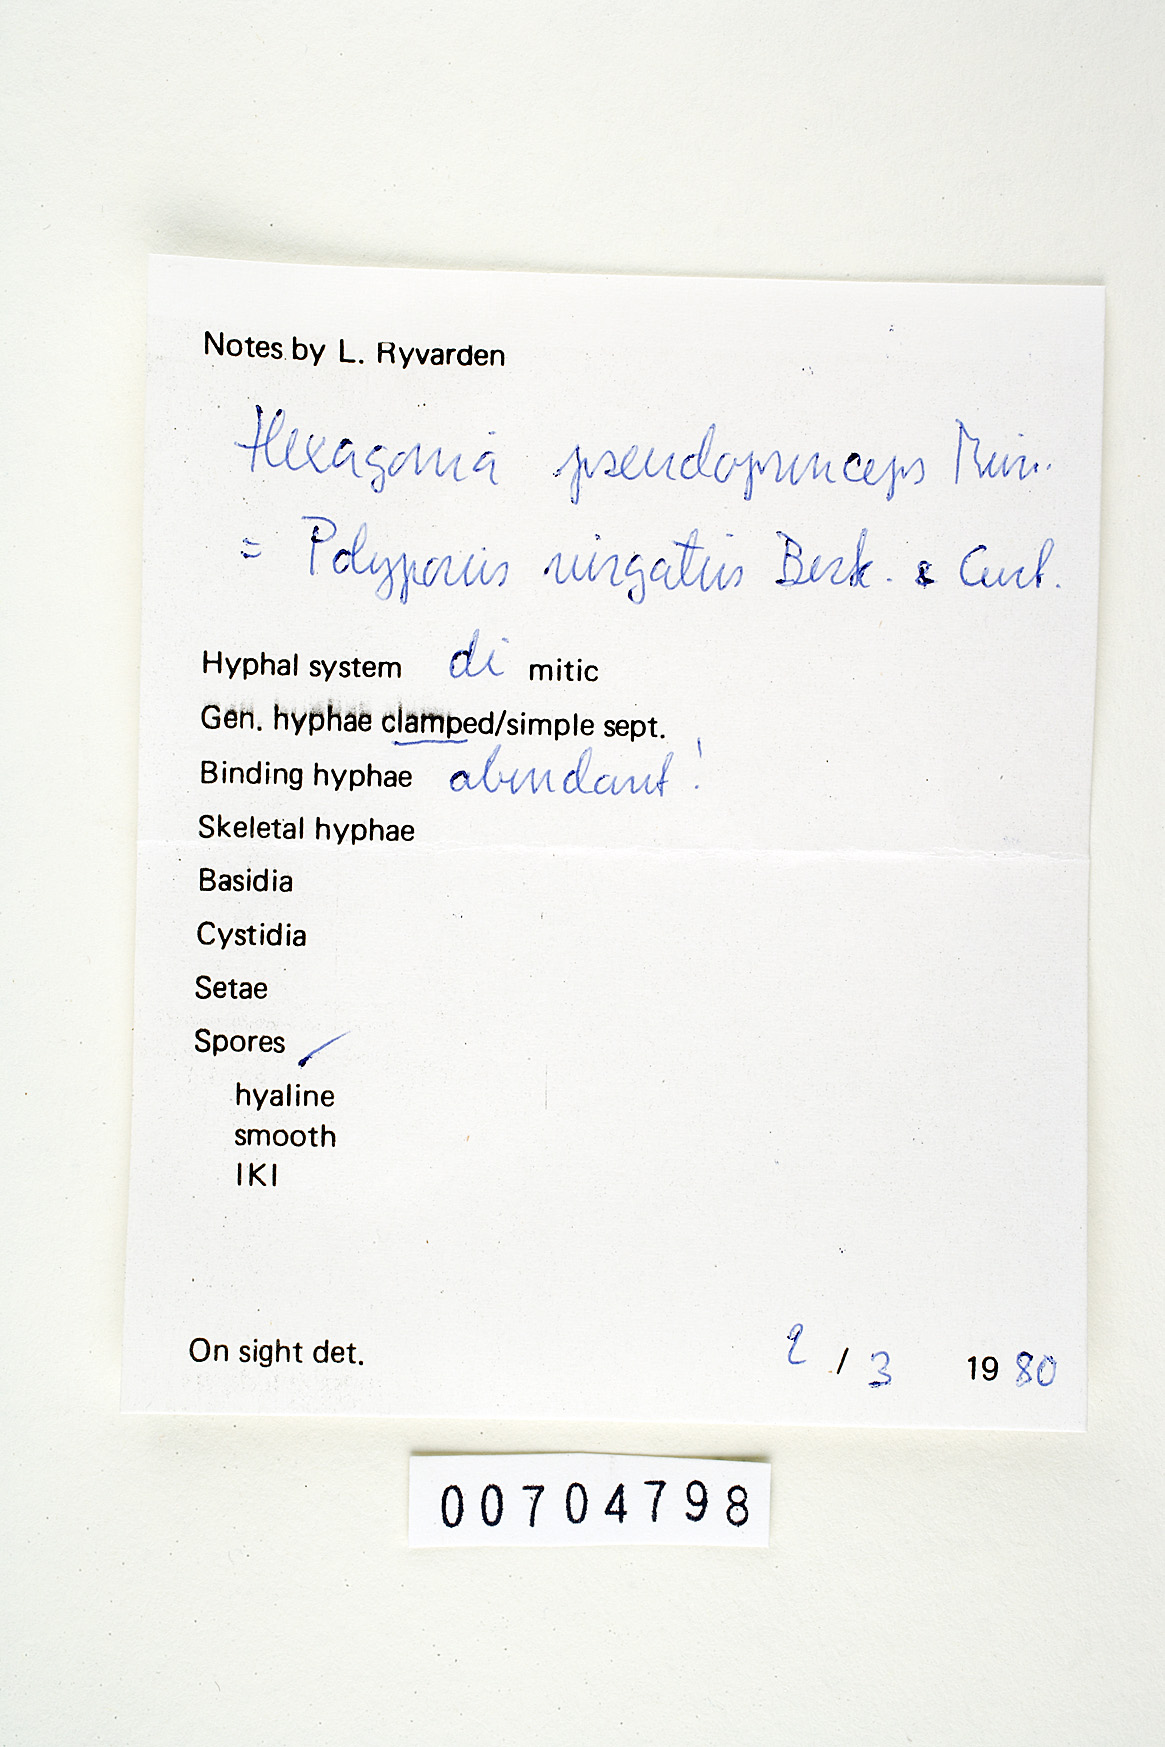 Notes by L. Ryvarden
Hexagonia pseudoprinceps Murr.
= Polyporus virgatus Berk. & Curt.
Hyphal system di mitic
Gen. hyphae clamped/simple sept.
Binding hyphae abundant!
Skeletal hyphae
Basidia
Cystidia
Setae
Spores /
hyaline
smooth
IKI
On sight det. 2 / 3 1980
00704798